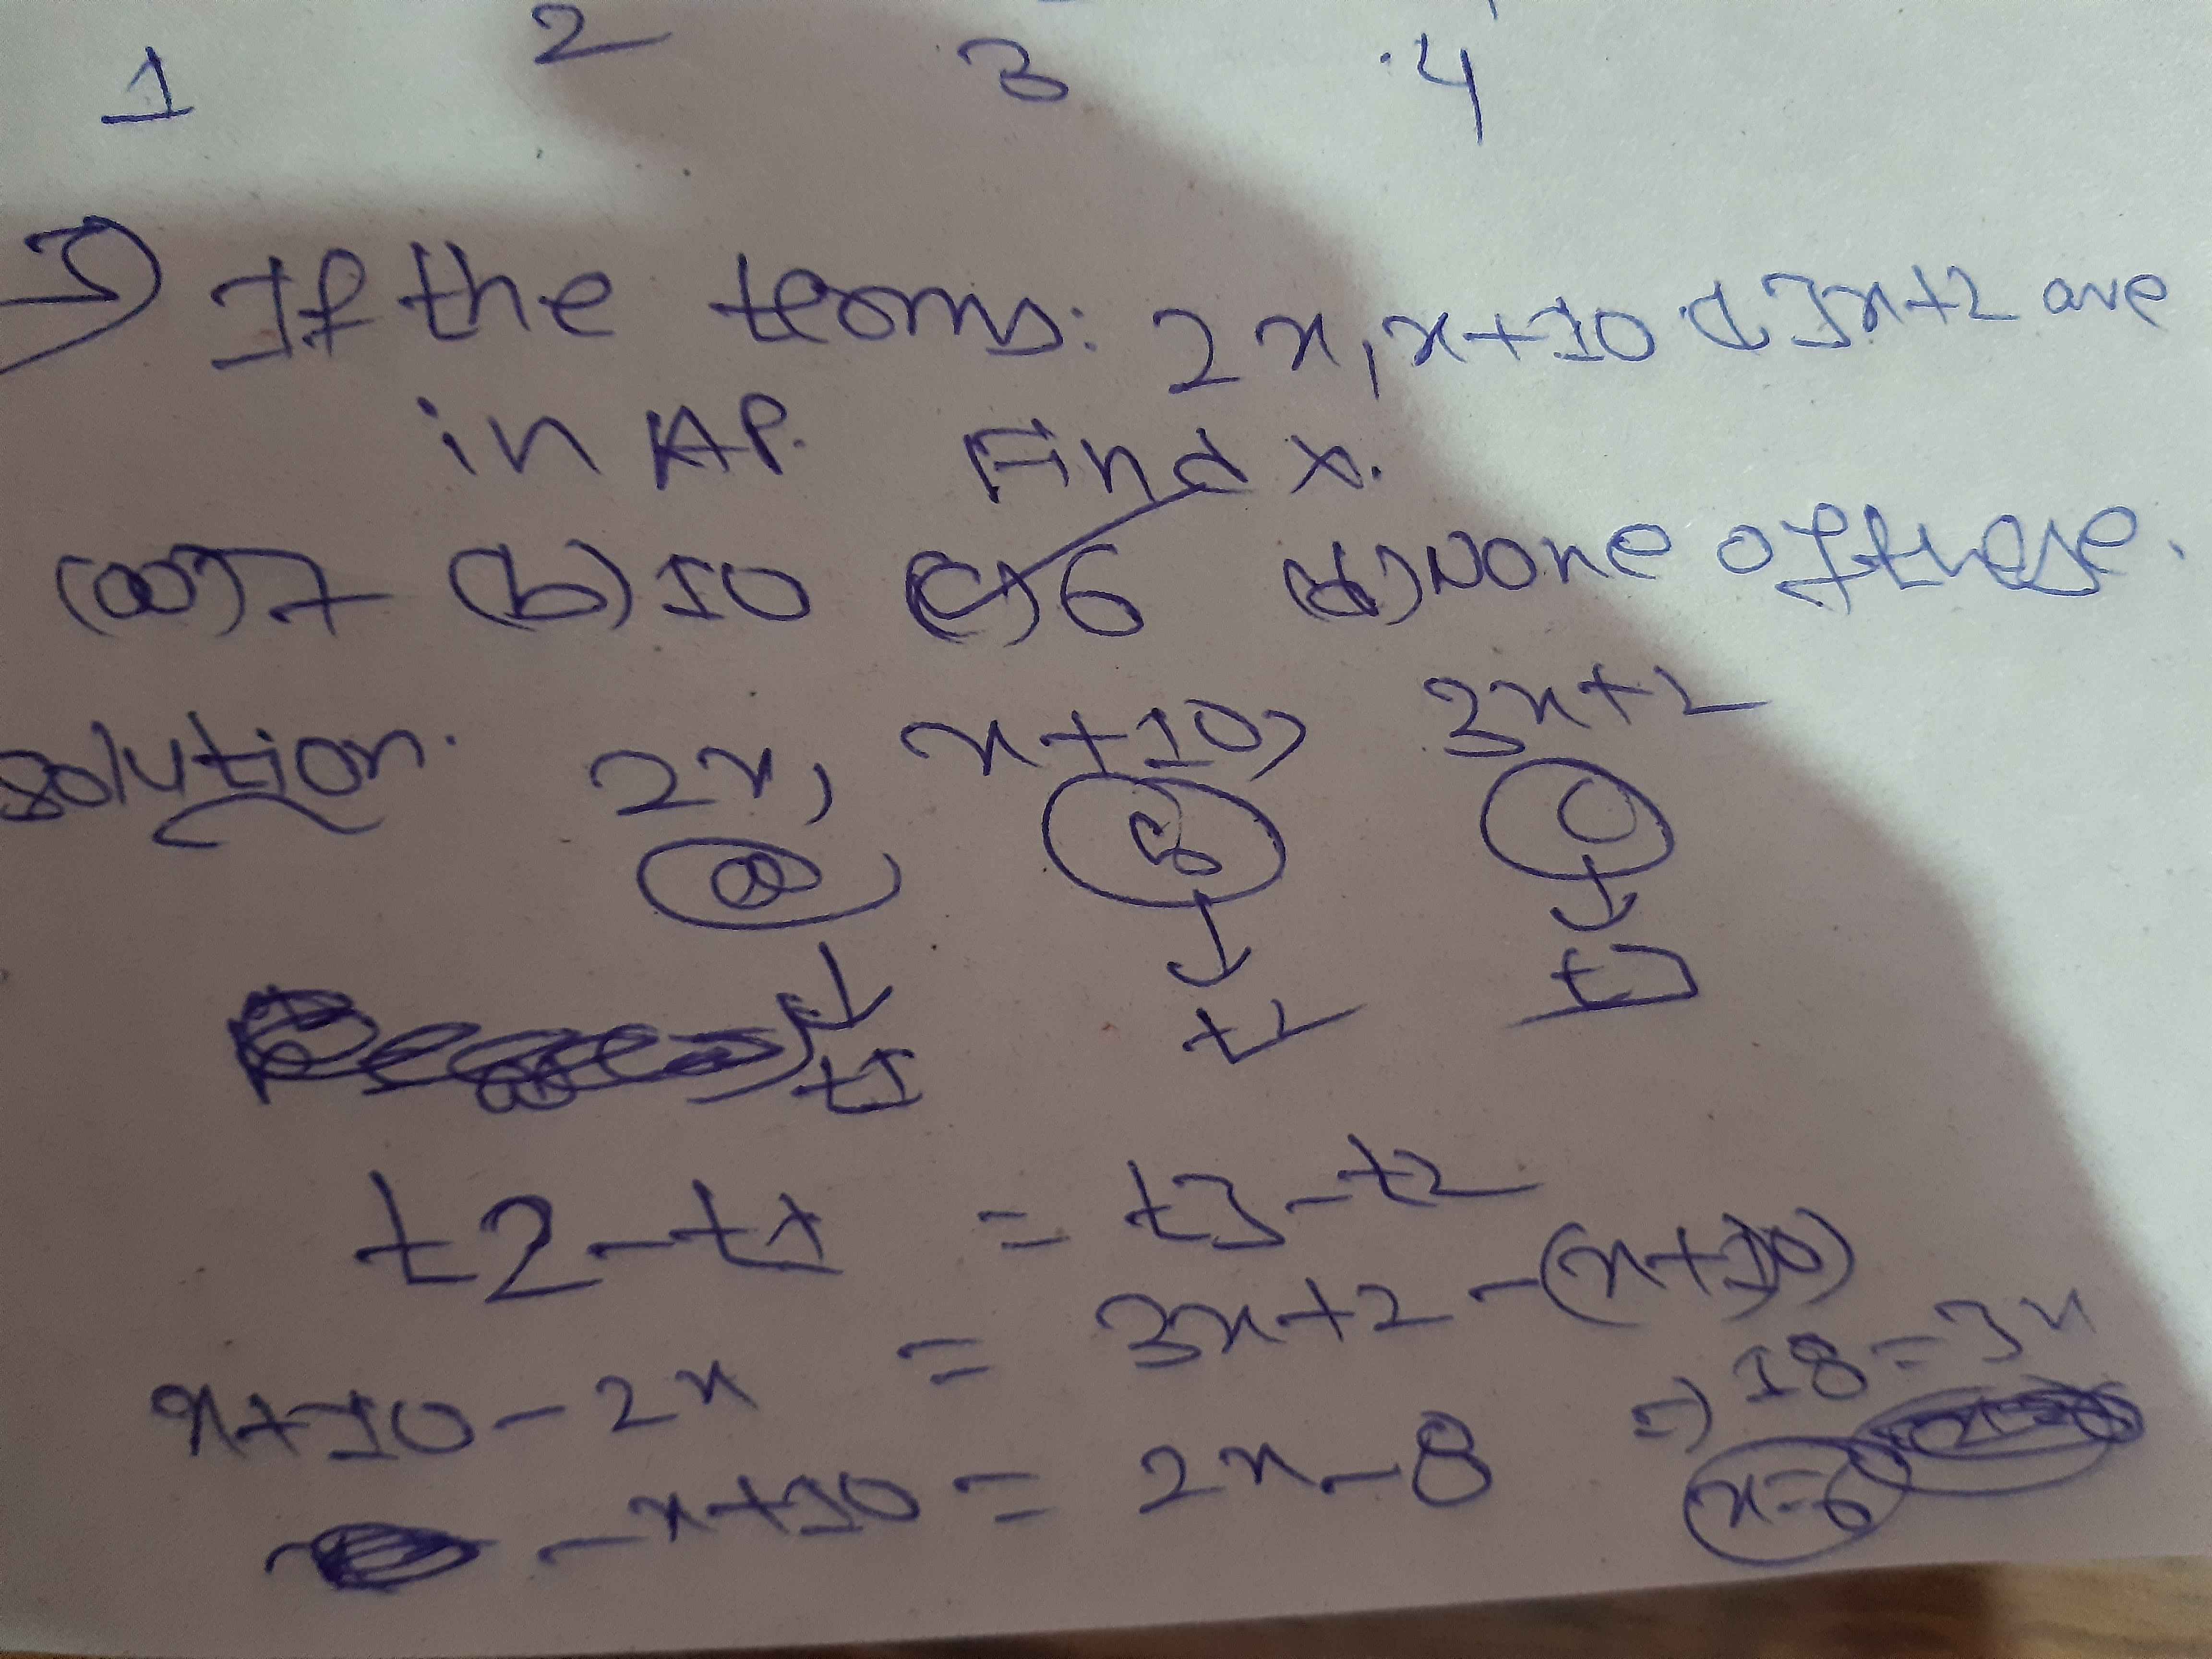 1 2 3 4
If the terms: 2x, x+10 & 3x+2 are
in AP. Find x.
(a) 7 (b) 10 (c) 6 (d) None of these.
Solution. 2x, x+10, 3x+2
a b c
t1 t2 t3
t2-t1 = t3-t2
x+10-2x = 3x+2-(x+10)
-x+10 = 2x-8 => 18=3x
x=6